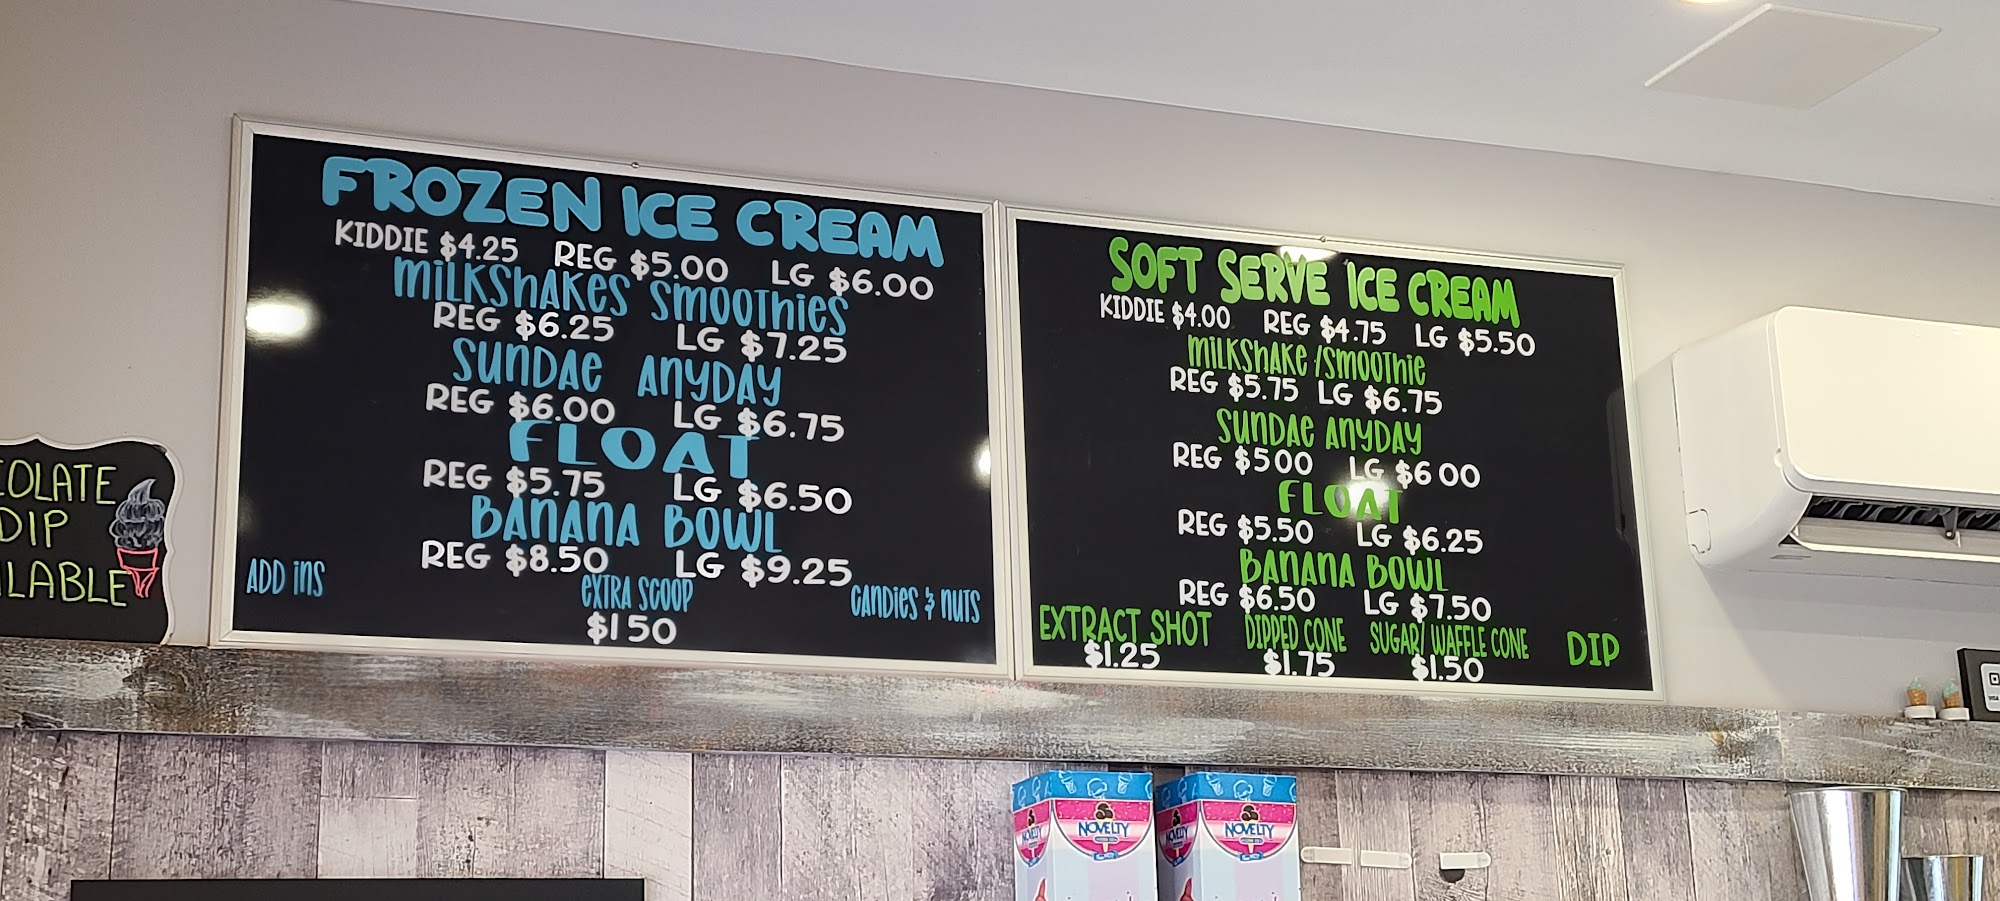 FROZEN ICE CREAM
KIDDIE $4.25 REG $5.00 LG $6.00
MILKSHAKES SMOOTHIES
REG $6.25 LG $7.25
SUNDAE ANYDAY
REG $6.00 LG $6.75
FLOAT
REG $5.75 LG $6.50
BANANA BOWL
REG $8.50 LG $9.25
ADD INS EXTRA SCOOP CANDIES & NUTS
$1 50
SOFT SERVE ICE CREAM
KIDDIE $4.00 REG $4.75 LG $5.50
MILKSHAKE / SMOOTHIE
REG $5.75 LG $6.75
SUNDAE ANYDAY
REG $5 00 LG $6 00
FLOAT
REG $5.50 LG $6.25
BANANA BOWL
REG $6.50 LG $7.50
EXTRACT SHOT DIPPED CONE SUGAR/ WAFFLE CONE DIP
$1.25 $1.75 $1.50
COLATE
DIP
ILABLE
NOVELTY
NOVELTY